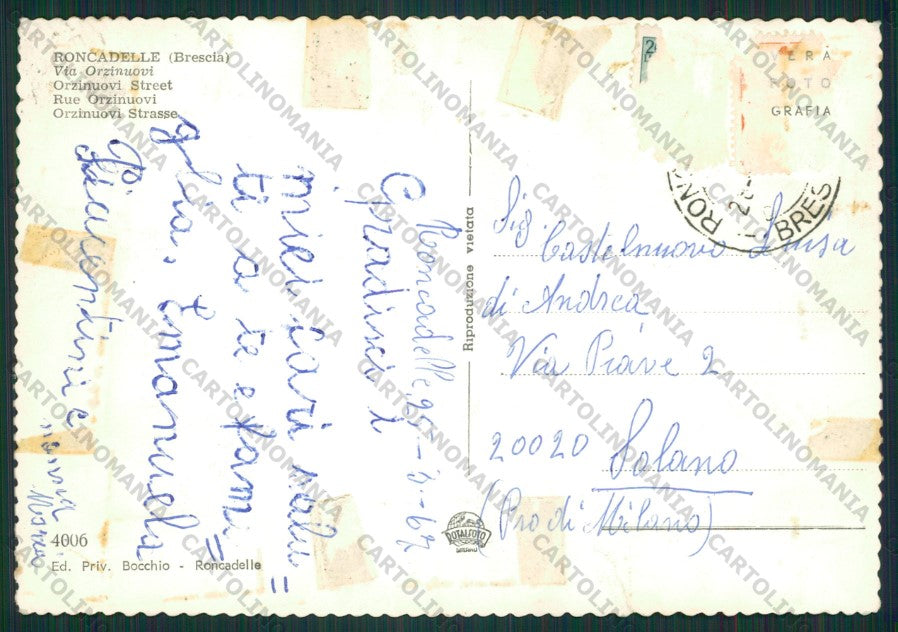 RONCADELLE (Brescia)
Via Orzinuovi
Orzinuovi Street
Rue Orzinuovi
Orzinuovi Strasse
Roncadelle 25-
Gradisci i
miei cari salu=
ti a te e fami=
glia. Emanuela
Piacentini e
nonna
Maria
4006
Ed. Priv. Bocchio - Roncadelle
Riproduzione vietata
ROTALFOTO
MILANO
VERA
FOTO
GRAFIA
BRES
Sig Castelnuovo Luisa
di Andrea
Via Piave 2
20020 Solano
(Pro di Milano)
CARTOLINOMANIA